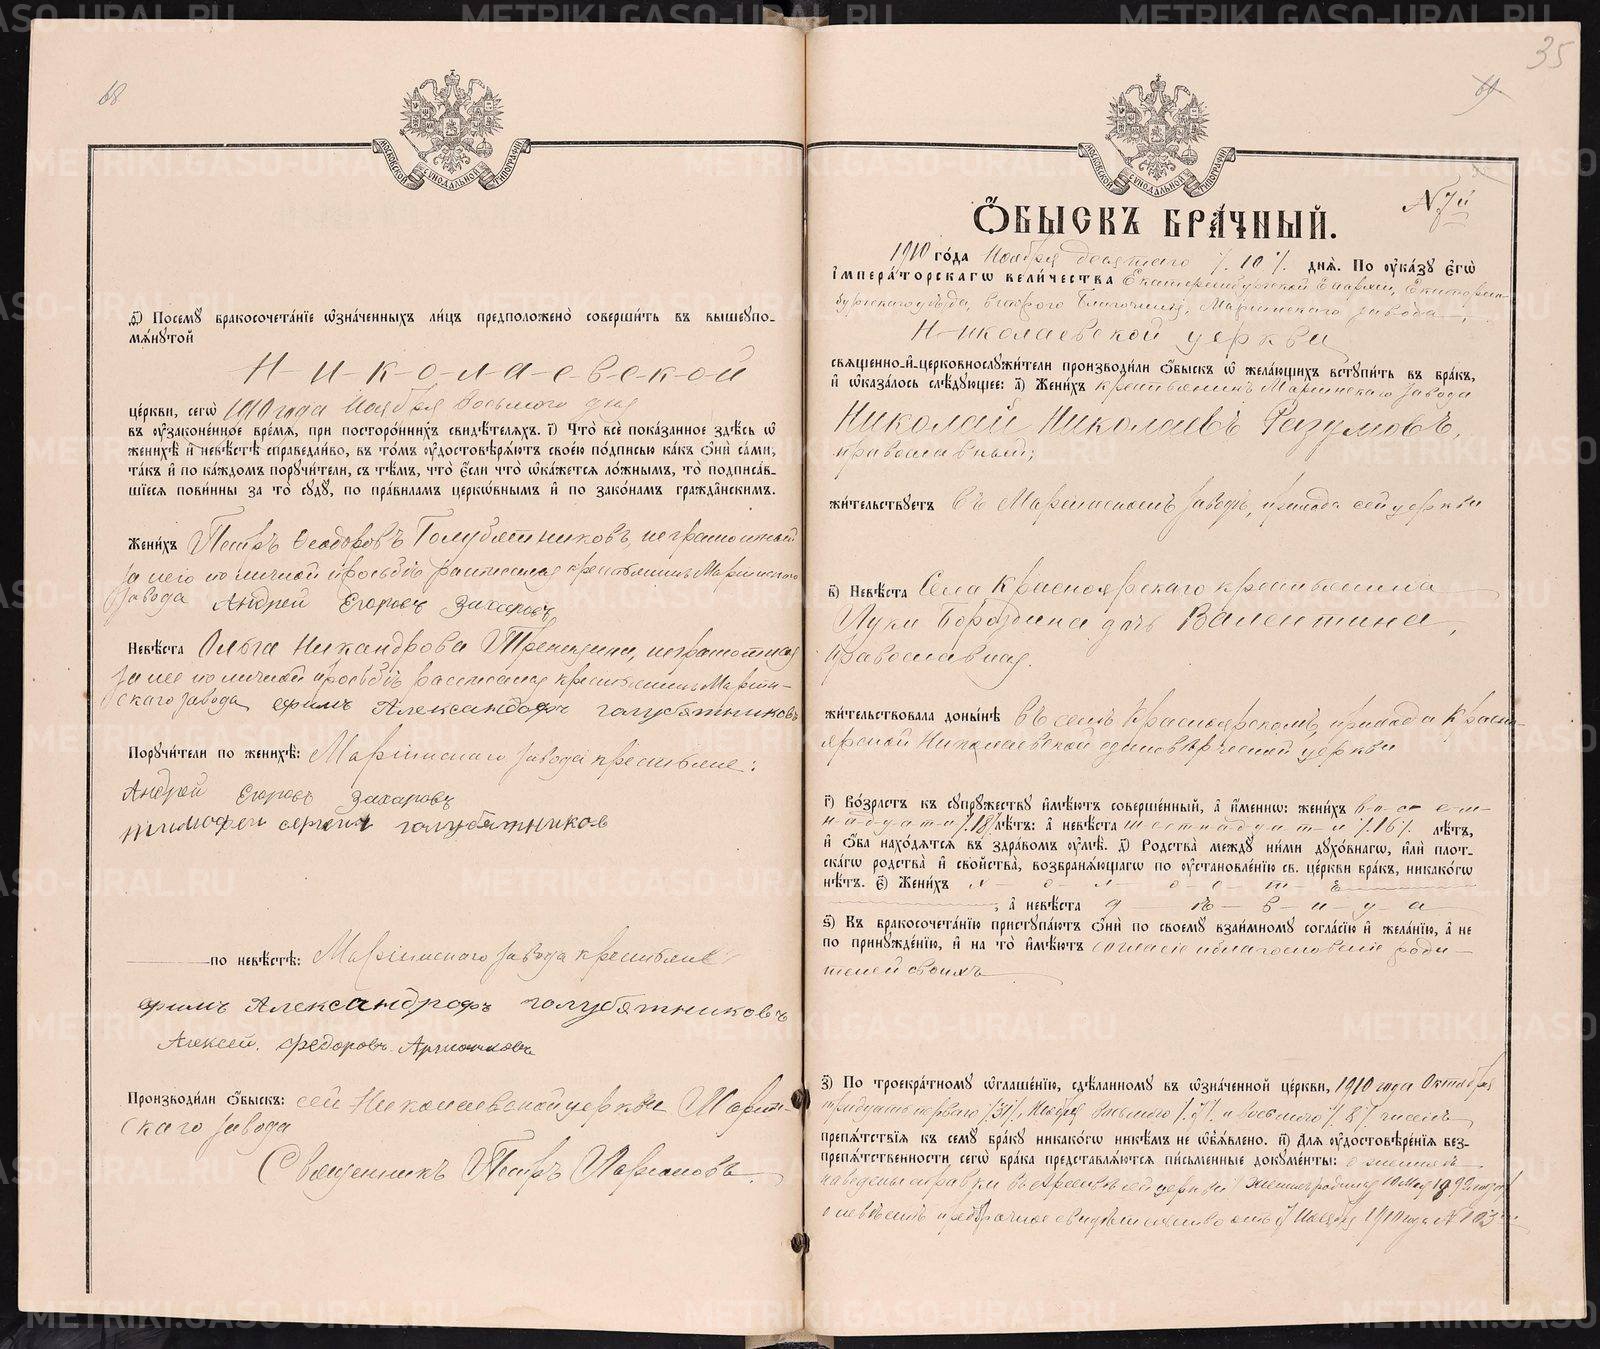 68
МОСКОВСКОЙ СѴНОДАЛЬНОЙ ТИПОГРАФІИ
д҃) Посемꙋ бракосочета́ніе ѡ҆зна́ченныхъ ли́цъ предположено̀ соверши́ть въ вышеꙋпо-
мѧ́нꙋтой
Н-и-к-о-л-а-е-в-с-к-о-й
це́ркви, сегѡ̀ 1910 года Ноября восьмого дня
въ ᲂу҆зако́ненное вре́мѧ, при посторо́ннихъ свидѣ́телѧхъ. і҃) Что̀ всѐ пока́занное здѣ́сь ѡ҆
женихѣ̀ и҆ невѣ́стѣ справедли́во, въ то́мъ ᲂу҆достовѣрѧ́ютъ свое́ю по́дписью ка́къ ѻ҆нѝ са́ми,
та́къ и҆ по ка́ждомъ порꙋчи́тели, съ тѣ́мъ, что̀ є҆́сли что̀ ѡ҆ка́жетсѧ ло́жнымъ, то̀ подписа́в-
шіесѧ пови́нны за то̀ сꙋдꙋ̀, по пра́виламъ церко́внымъ и҆ по зако́намъ гражда́нскимъ.
Жени́хъ Петръ Ѳеодоровъ Голубятниковъ, неграмотный
за него по личной просьбѣ расписался крестьянинъ Маріинского
завода Андрей Егоровъ Захаровъ
Невѣ́ста Ольга Никандрова неграмотная
за нее по личной просьбѣ расписался крестьянинъ Маріин-
скаго завода ефимъ Александроф голубятниковъ
Порꙋчи́тели по женихѣ̀: Маріинскаго завода крестьяне:
Андрей Егоровъ Захаровъ
тимофеи сергеив голубятников
по невѣ́стѣ: Маріинскаго завода крестьяне
ефимъ Александрофъ голубятниковъ
Алексей федоровъ
Производи́ли ѻ҆́быскъ: сей Николаевской церкви Маріин-
скаго завода
Священникъ Петръ Ларіоновъ.
35
69
МОСКОВСКОЙ СѴНОДАЛЬНОЙ ТИПОГРАФІИ
N 7й
Ѻ҆́БЫСКЪ БРА́ЧНЫЙ.
1910 го́да Ноября десятаго /. 10 /. днѧ̀. По ᲂу҆ка́зꙋ є҆гѡ̀
і҆мпера́торскагѡ вели́чества Екатеринбургской Епархіи, Екатерин-
бургскаго уѣзда, Благочинія, Маріинскаго завода,
Николаевской церкви
свѧще́нно-и҆-церковнослꙋжи́тели производи́ли ѻ҆́быскъ ѡ҆ жела́ющихъ встꙋпи́ть въ бра́къ,
и҆ ѡ҆каза́лось слѣ́дꙋющее: а҃) Жени́хъ крестьянинъ Маріинскаго завода
Николай Николаевъ Разумовъ,
православный;
жи́тельствꙋетъ въ Маріинскомъ заводѣ, прихода сей церкви
в҃) Невѣ́ста Села Красноярскаго крестьянина
Луки Бороздина дочь Валентина,
православная.
жи́тельствовала доны́нѣ въ селѣ Красноярскомъ, прихода Красно-
ярской Николаевской единовѣрческой церкви
г҃) Во́зрастъ къ сꙋпрꙋ́жествꙋ и҆мѣ́ютъ соверше́нный, а҆ и҆́меннѡ: жени́хъ во-се-м-
н-а-д-ц-а-т-и /.18/ лѣ́тъ: а҆ невѣ́ста ш-е-с-т-н-а-д-ц-а-т-и /.16/. лѣ́тъ,
и҆ ѻ҆́ба нахо́дѧтсѧ въ здра́вомъ ᲂу҆мѣ̀. д҃) Родства̀ ме́ждꙋ ни́ми дꙋхо́внагѡ, и҆лѝ пло́т-
скагѡ родства̀ и҆ сво́йства, возбранѧ́ющагѡ по ᲂу҆становле́нію св. це́ркви бра́къ, никако́гѡ
нѣ́тъ. є҃) Жени́хъ х-о-л-о-с-т-ъ
, а҆ невѣ́ста д-ѣ-в-и-ц-а
ѕ҃) Къ бракосочета́нію пристꙋпа́ютъ ѻ҆нѝ по своемꙋ̀ взаи́мномꙋ согла́сію и҆ жела́нію, а҆ не
по принꙋжде́нію, и҆ на то̀ и҆мѣ́ютъ согласіе и благословеніе роди-
телей своихъ
з҃) По троекра́тномꙋ ѡ҆глаше́нію, сдѣ́ланномꙋ въ ѡ҆зна́ченной це́ркви, 1910 года Октября
тридцать перваго /31/, Ноября и восьмого /.8/ чиселъ
препѧ́тствіѧ къ семꙋ̀ бра́кꙋ никако́гѡ никѣ́мъ не ѡ҆б̾ѧ́влено. и҃) Длѧ ᲂу҆достовѣре́ніѧ без-
препѧ́тственности сегѡ̀ бра́ка представлѧ́ютсѧ пи́сьменные докꙋме́нты: о женихѣ
наведены справки въ сей церкви, родился 10 Мая 1892 года
о невѣстѣ предбрачное свидѣтельство отъ Ноября 1910 года N 103